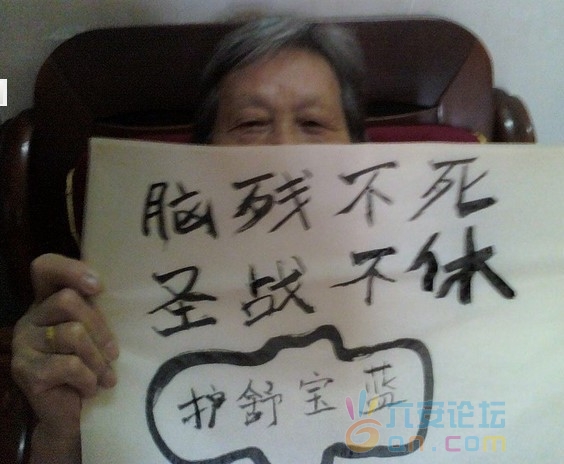 脑残不死
圣战不休
护舒宝蓝
六安论坛
6an.com